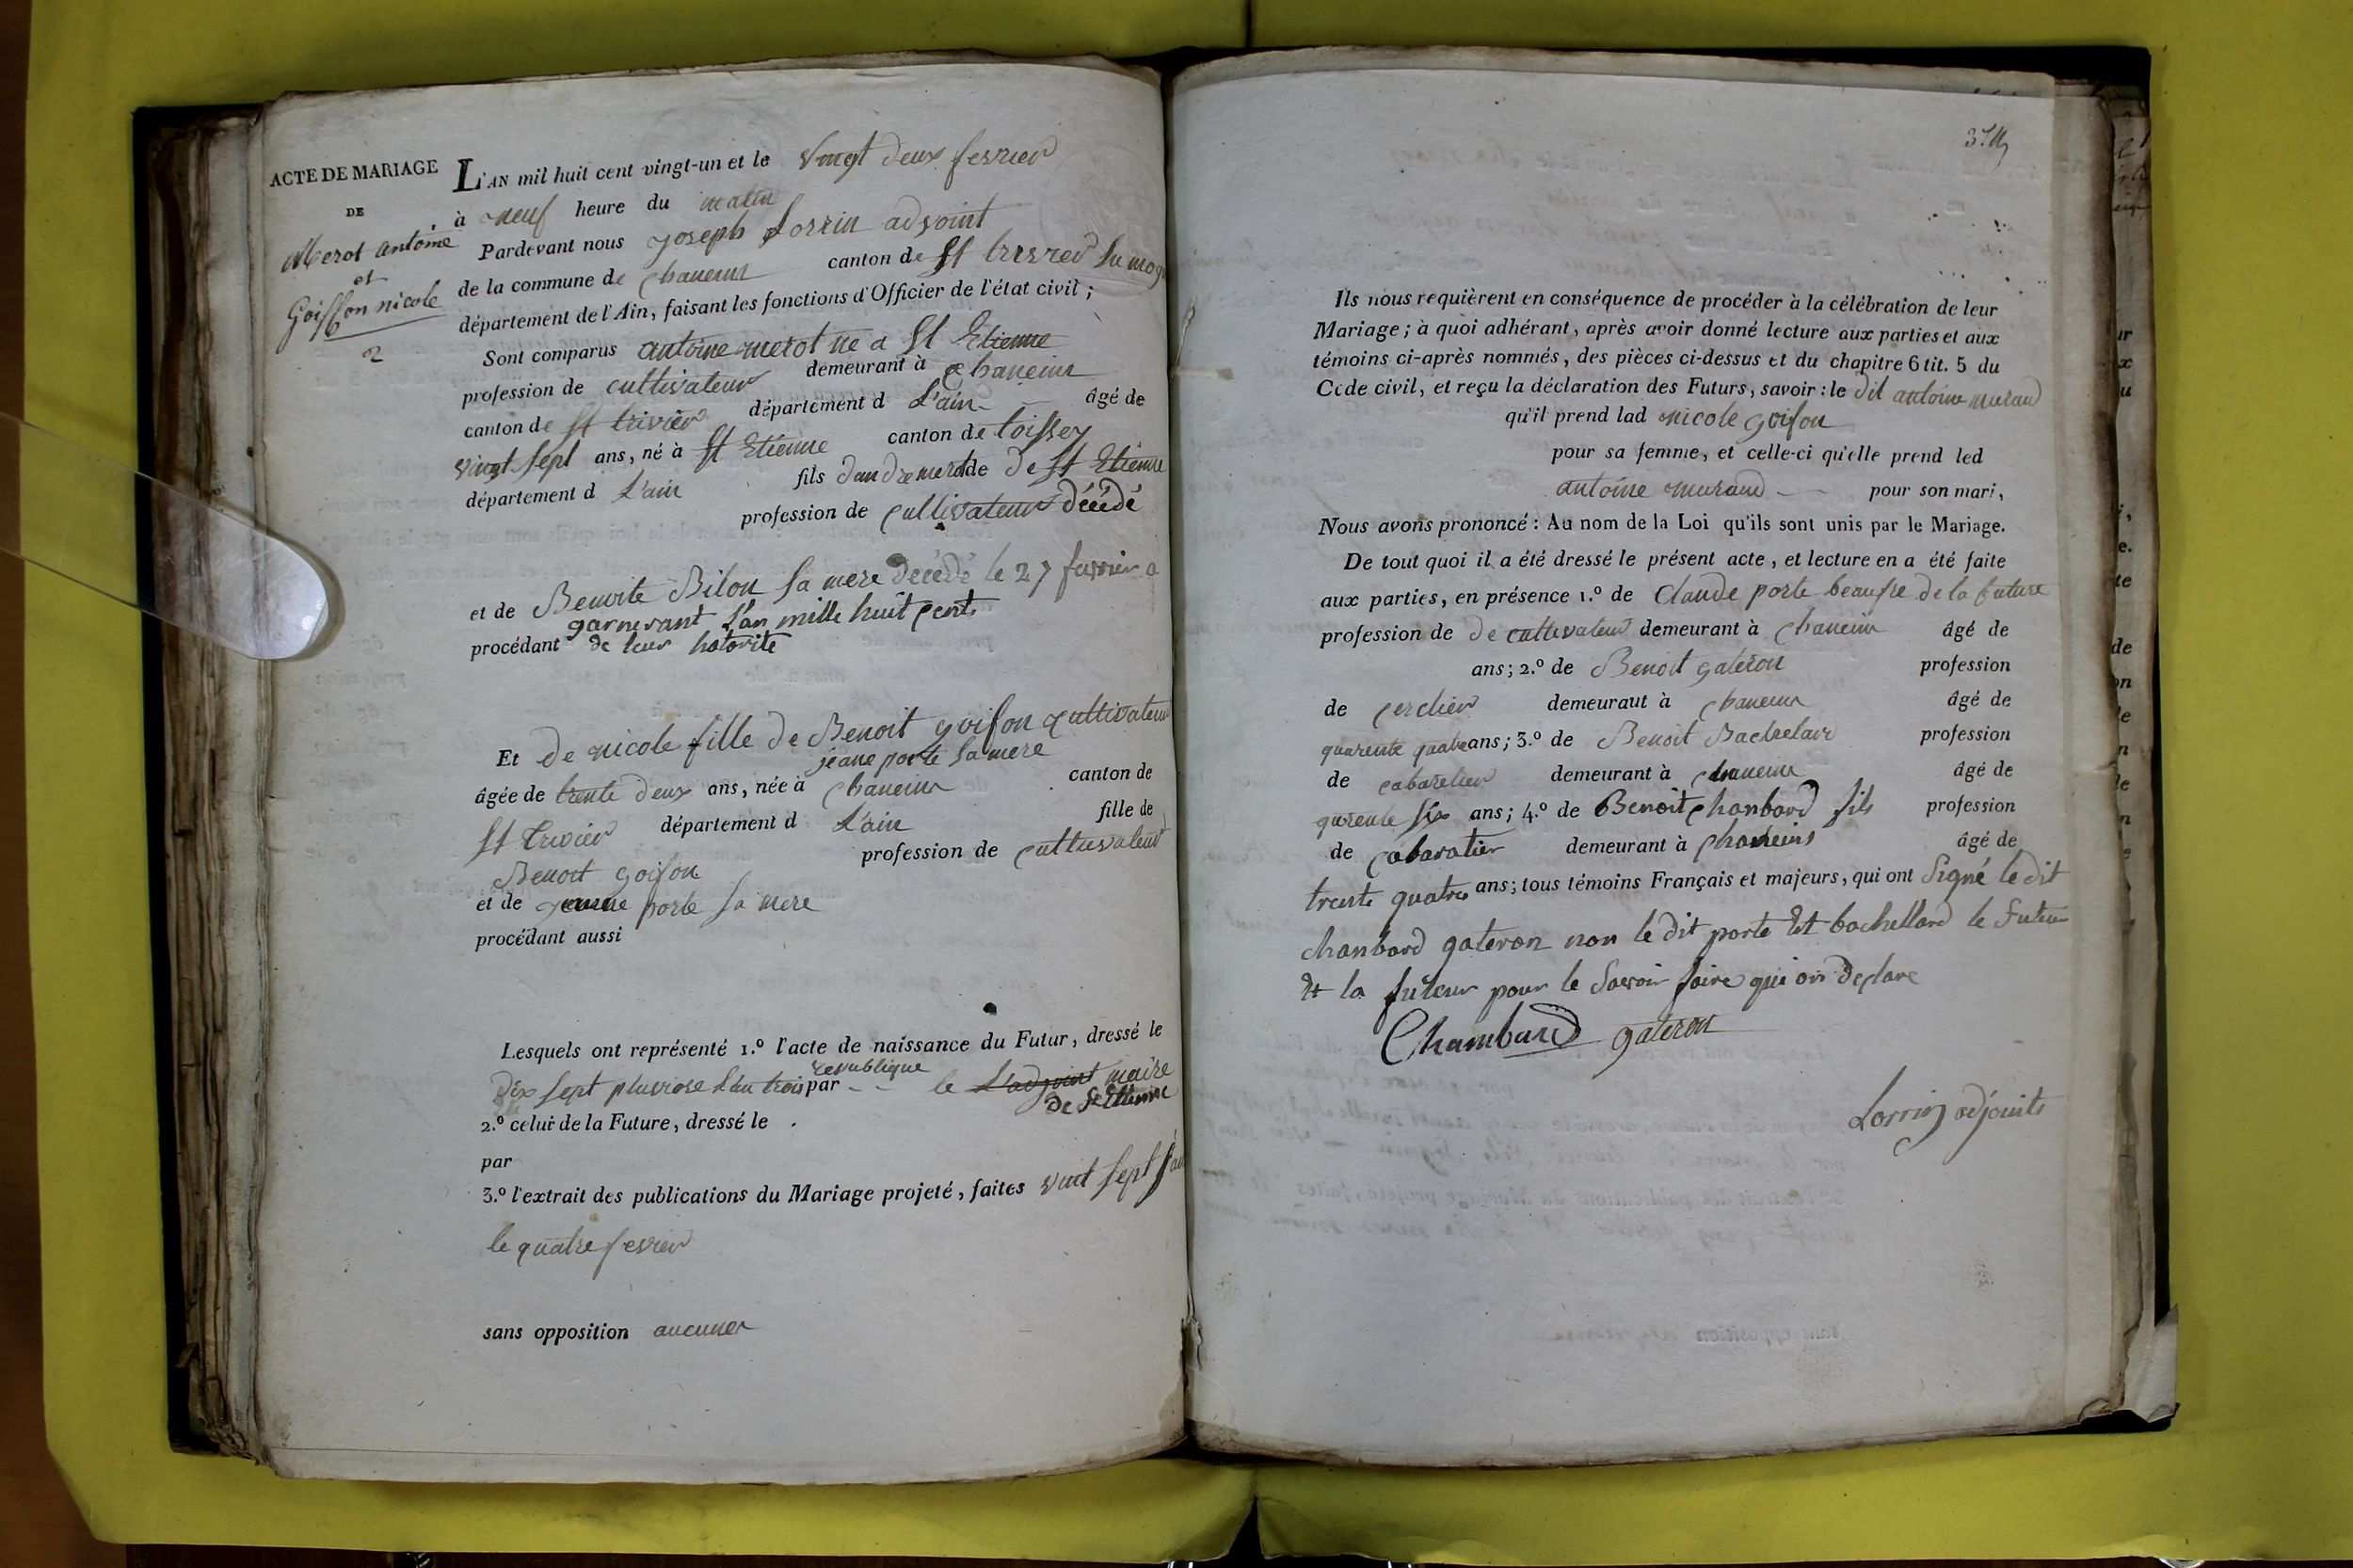 ACTE DE MARIAGE
DE
Merot antoine
et
Goiffon nicole
2
L'AN mil huit cent vingt-un et le vingt deux fevrier
à neuf heure du matin
Pardevant nous joseph Lorrin adjoint
de la commune de chaneins canton de St trivier su mog
département de l'Ain, faisant les fonctions d'Officier de l'état civil;
Sont comparus antoine merot ne a St Etienne
profession de cultivateur demeurant à chaneins
canton de St trivier département d L'ain âgé de
vingt sept ans, né à St Etienne canton de toissey
département d L'ain fils dandre merot de De St Etienne
profession de cultivateur décédé
et de Benoite Bilon sa mere décédé le 27 fevrier a
garnerant l'an mille huit cent
procédant de leur hotorite
Et De nicole fille De Benoit goifon cultivateur
jeane porte sa mere
âgée de trente deux ans, née à chaneins canton de
St trivier département d L'ain fille de
Benoit goifon profession de cultivateur
et de jeanne porte sa mere
procédant aussi
Lesquels ont représenté 1.º l'acte de naissance du Futur, dressé le
republique
Dix sept pluviose Lan trois par le L'adjoint maire
de St Etienne
2.º celui de la Future, dressé le
par
3.º l'extrait des publications du Mariage projeté, faites vint sept
le quatre fevrier
sans opposition aucuner
Ils nous requièrent en conséquence de procéder à la célébration de leur
Mariage; à quoi adhérant, après avoir donné lecture aux parties et aux
témoins ci-après nommés, des pièces ci-dessus et du chapitre 6 tit. 5 du
Code civil, et reçu la déclaration des Futurs, savoir: le dit antoine muraud
qu'il prend lad nicole goifon
pour sa femme, et celle-ci qu'elle prend led
antoine muraud pour son mari,
Nous avons prononcé: Au nom de la Loi qu'ils sont unis par le Mariage.
De tout quoi il a été dressé le présent acte, et lecture en a été faite
aux parties, en présence 1.º de Claude porte beaufre de la future
profession de De cultivateur demeurant à chaneins âgé de
ans; 2.º de Benoit gateron profession
de cerclier demeurant à chaneins âgé de
quarente quatre ans; 3.º de Benoit Bachelard profession
de cabaretier demeurant à chaneins âgé de
qurente six ans; 4.º de Benoit chanbard fils profession
de cabaratier demeurant à chaneins âgé de
trente quatre ans; tous témoins Français et majeurs, qui ont Signé le dit
chanbard gateron non le dit porte et bachellard le Futeur
et la futeur pour le Savoir faire qui on declare
Chambard gateron
Lorrin adjoint